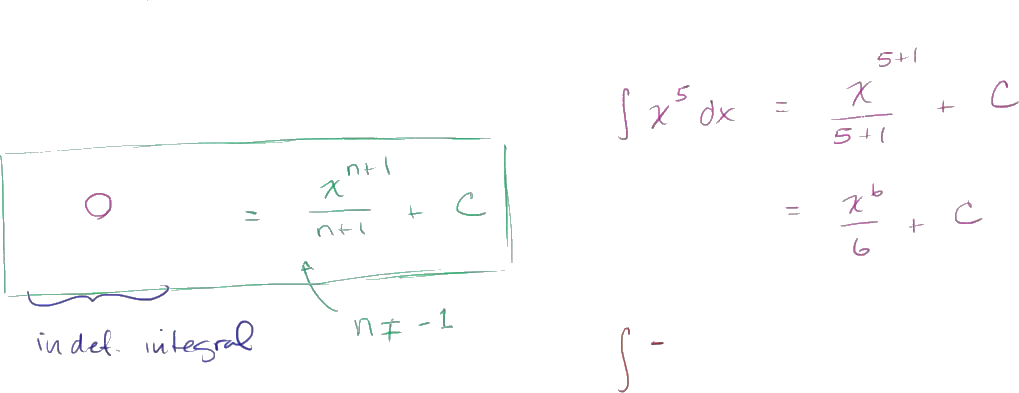 O = x^{n+1}/(n+1) + C
n ≠ -1
indef. integral
∫ x^5 dx = x^{5+1}/(5+1) + C
= x^6/6 + C
∫ -